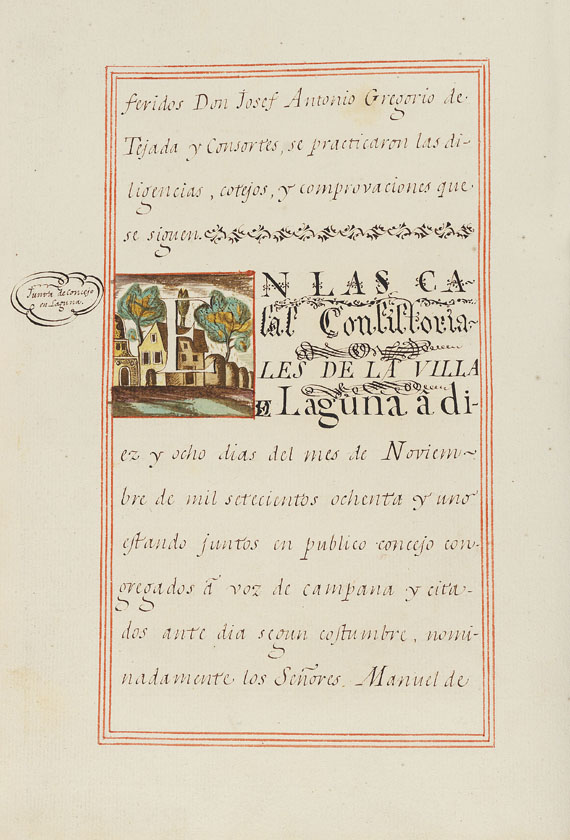 feridos Don Josef Antonio Gregorio de
Tejada y Consortes, se practicaron las di-
ligencias, cotejos, y comprovaciones que
se siguen.
Junta de concejo
en Laguna.
N LAS CA-
sas Consistoria-
LES DE LA VILLA
E Laguna á di-
ez y ocho dias del mes de Noviem-
bre de mil setecientos ochenta y uno
estando juntos en publico concejo con-
gregados á voz de campana y cita-
dos ante dia segun costumbre, nomi-
nadamente los Señores. Manuel de